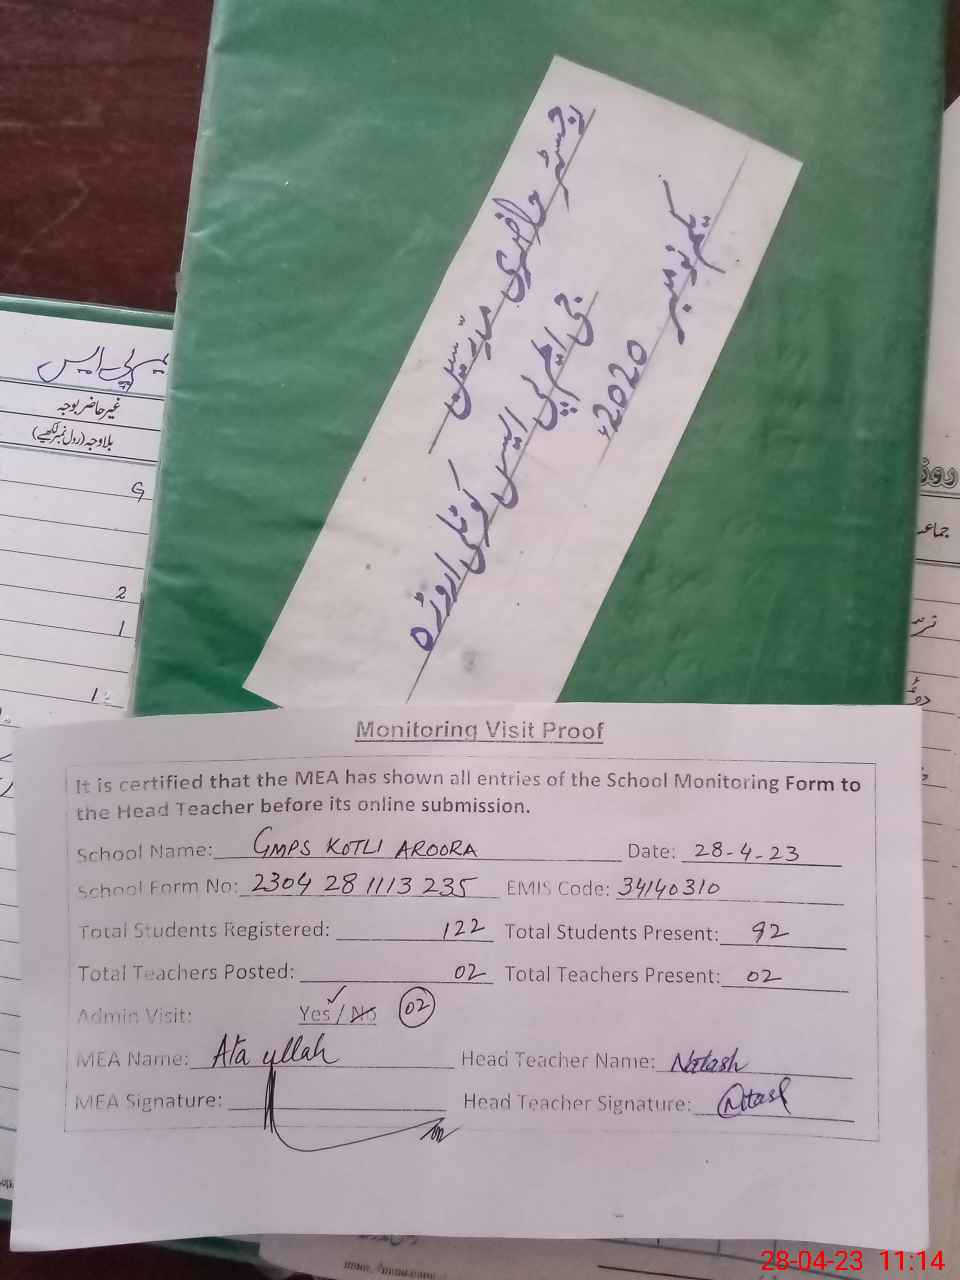 رجسٹر حاضری مدرسین
جی ایم پی ایس کوٹلی اروڑہ
یکم نومبر 2020ء
پی ایس
غیر حاضر بوجہ
بلاوجہ (رول نمبر لکھیے)
9
2
1
1
روز
جماعت
Monitoring Visit Proof
It is certified that the MEA has shown all entries of the School Monitoring Form to
the Head Teacher before its online submission.
School Name: GMPS KOTLI AROORA Date: 28-4-23
School Form No: 2304 28 1113 235 EMIS Code: 34140310
Total Students Registered: 122 Total Students Present: 92
Total Teachers Posted: 02 Total Teachers Present: 02
Admin Visit: Yes / No 02
MEA Name: Ata ullah Head Teacher Name: Natash
MEA Signature: Head Teacher Signature: Natash
28-04-23 11:14